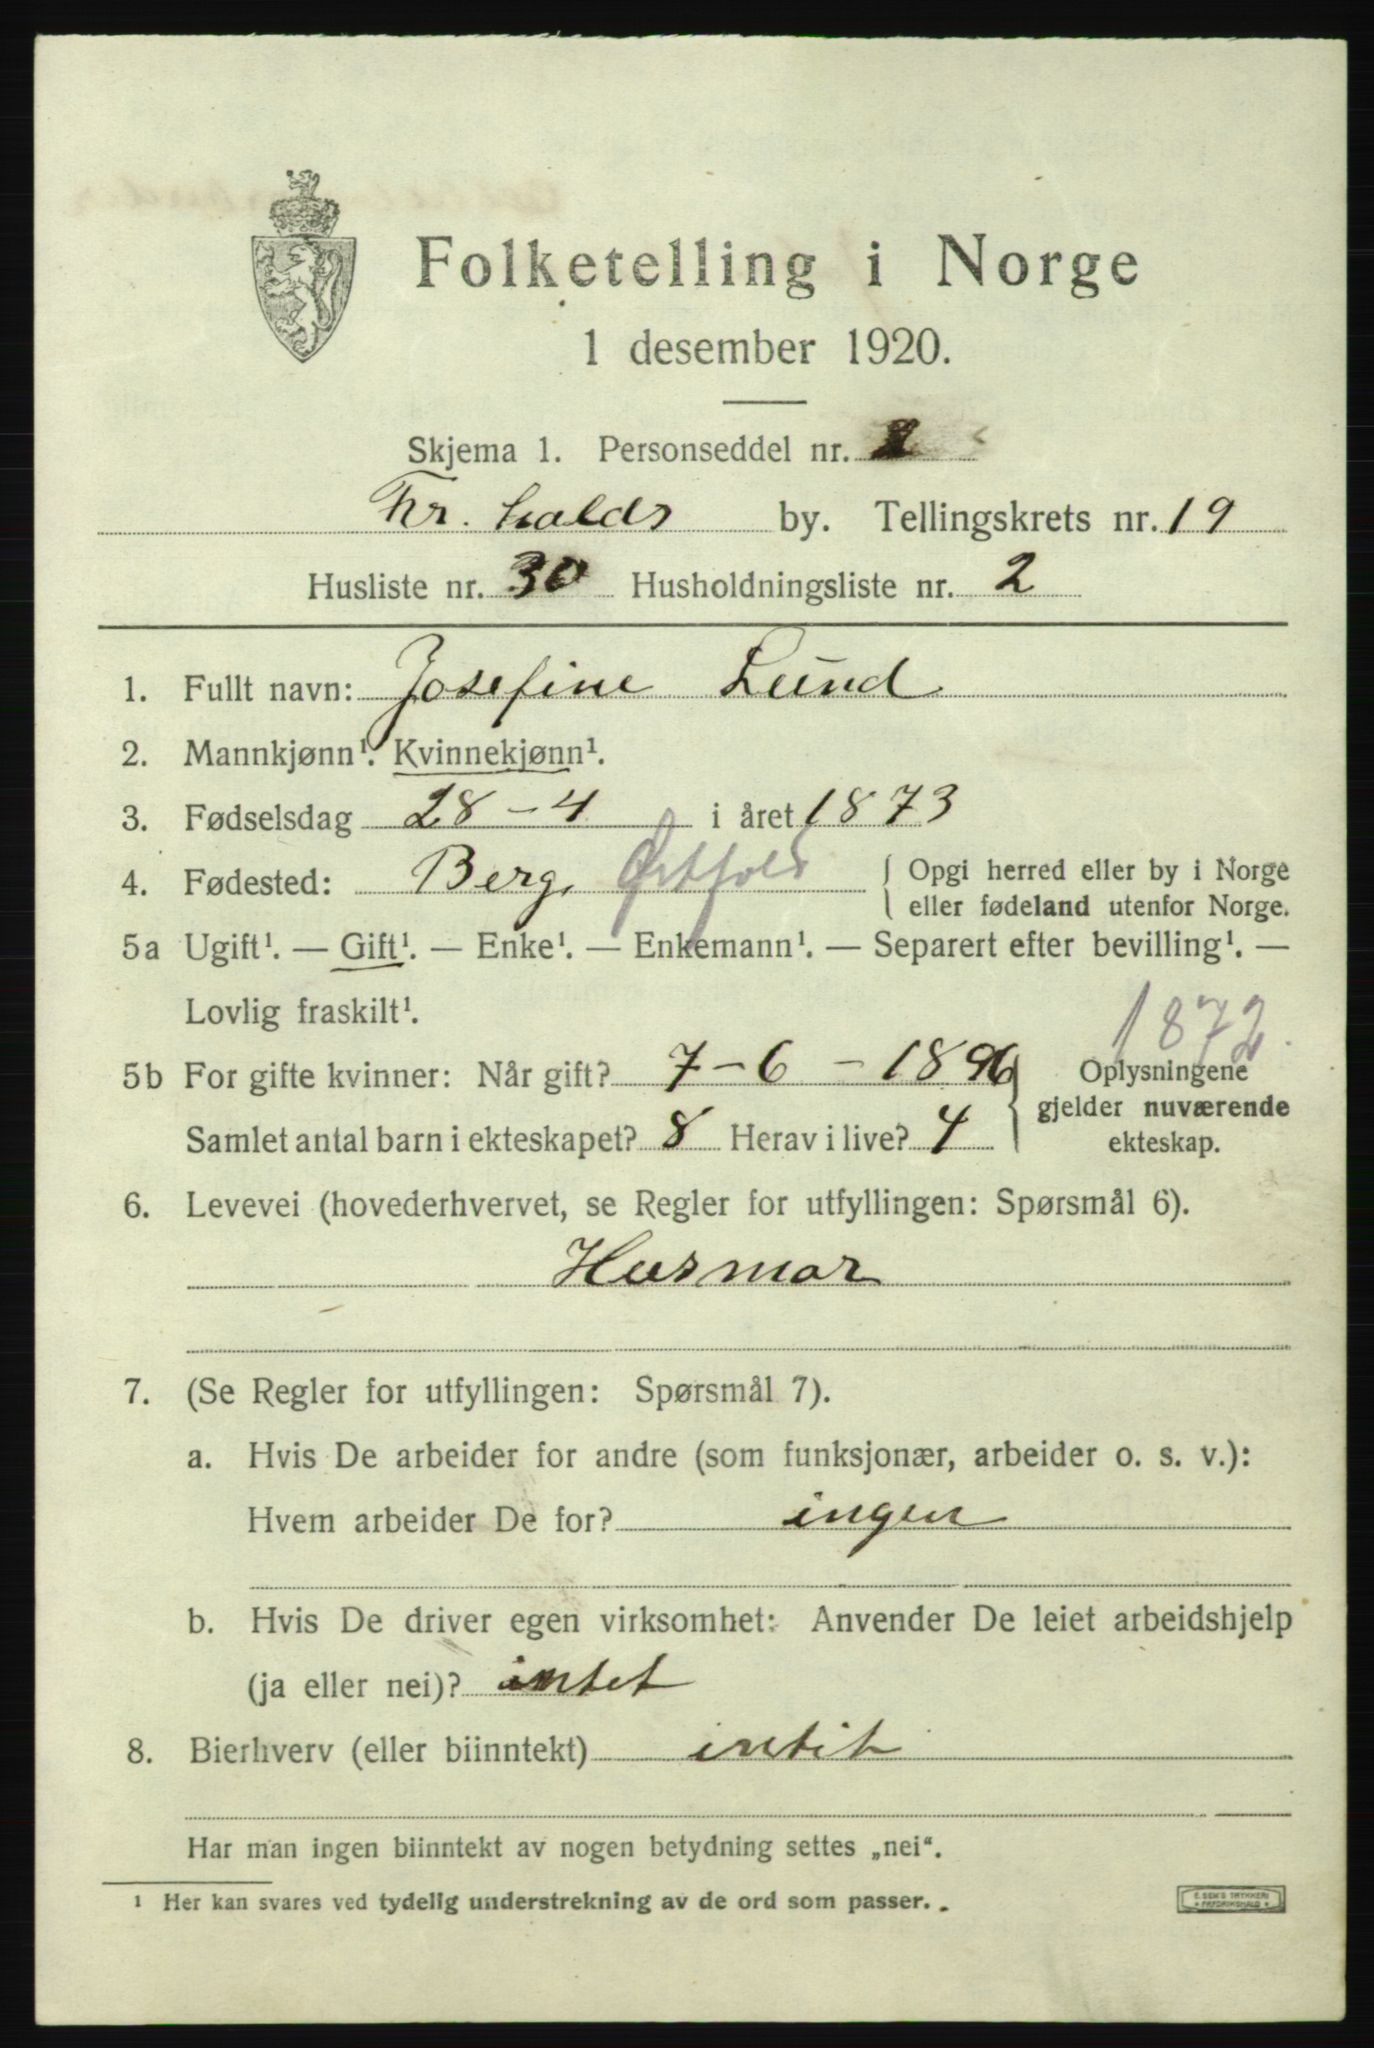 Folketelling i Norge
1 desember 1920.
Skjema 1. Personseddel nr.
Fr. halds by. Tellingskrets nr. 19
Husliste nr. 30 Husholdningsliste nr. 2
1. Fullt navn: Josefine Lund
2. Mannkjønn¹. Kvinnekjønn¹.
3. Fødselsdag 28 - 4 i året 1873
4. Fødested: Berg, Østfold { Opgi herred eller by i Norge
eller fødeland utenfor Norge.
5a Ugift¹. — Gift¹. — Enke¹. — Enkemann¹. — Separert efter bevilling¹. —
Lovlig fraskilt¹.
1872
5b For gifte kvinner: Når gift? 7 - 6 - 1896 } Oplysningene
gjelder nuværende
Samlet antal barn i ekteskapet? 8 Herav i live? 4 ekteskap.
6. Levevei (hovederhvervet, se Regler for utfyllingen: Spørsmål 6).
Husmor
7. (Se Regler for utfyllingen: Spørsmål 7).
a. Hvis De arbeider for andre (som funksjonær, arbeider o. s. v.):
Hvem arbeider De for? ingen
b. Hvis De driver egen virksomhet: Anvender De leiet arbeidshjelp
(ja eller nei)? intet
8. Bierhverv (eller biinntekt) intit
Har man ingen biinntekt av nogen betydning settes „nei“.
¹ Her kan svares ved tydelig understrekning av de ord som passer.
E. SEM'S TRYKKERI
FREDRIKSHALD